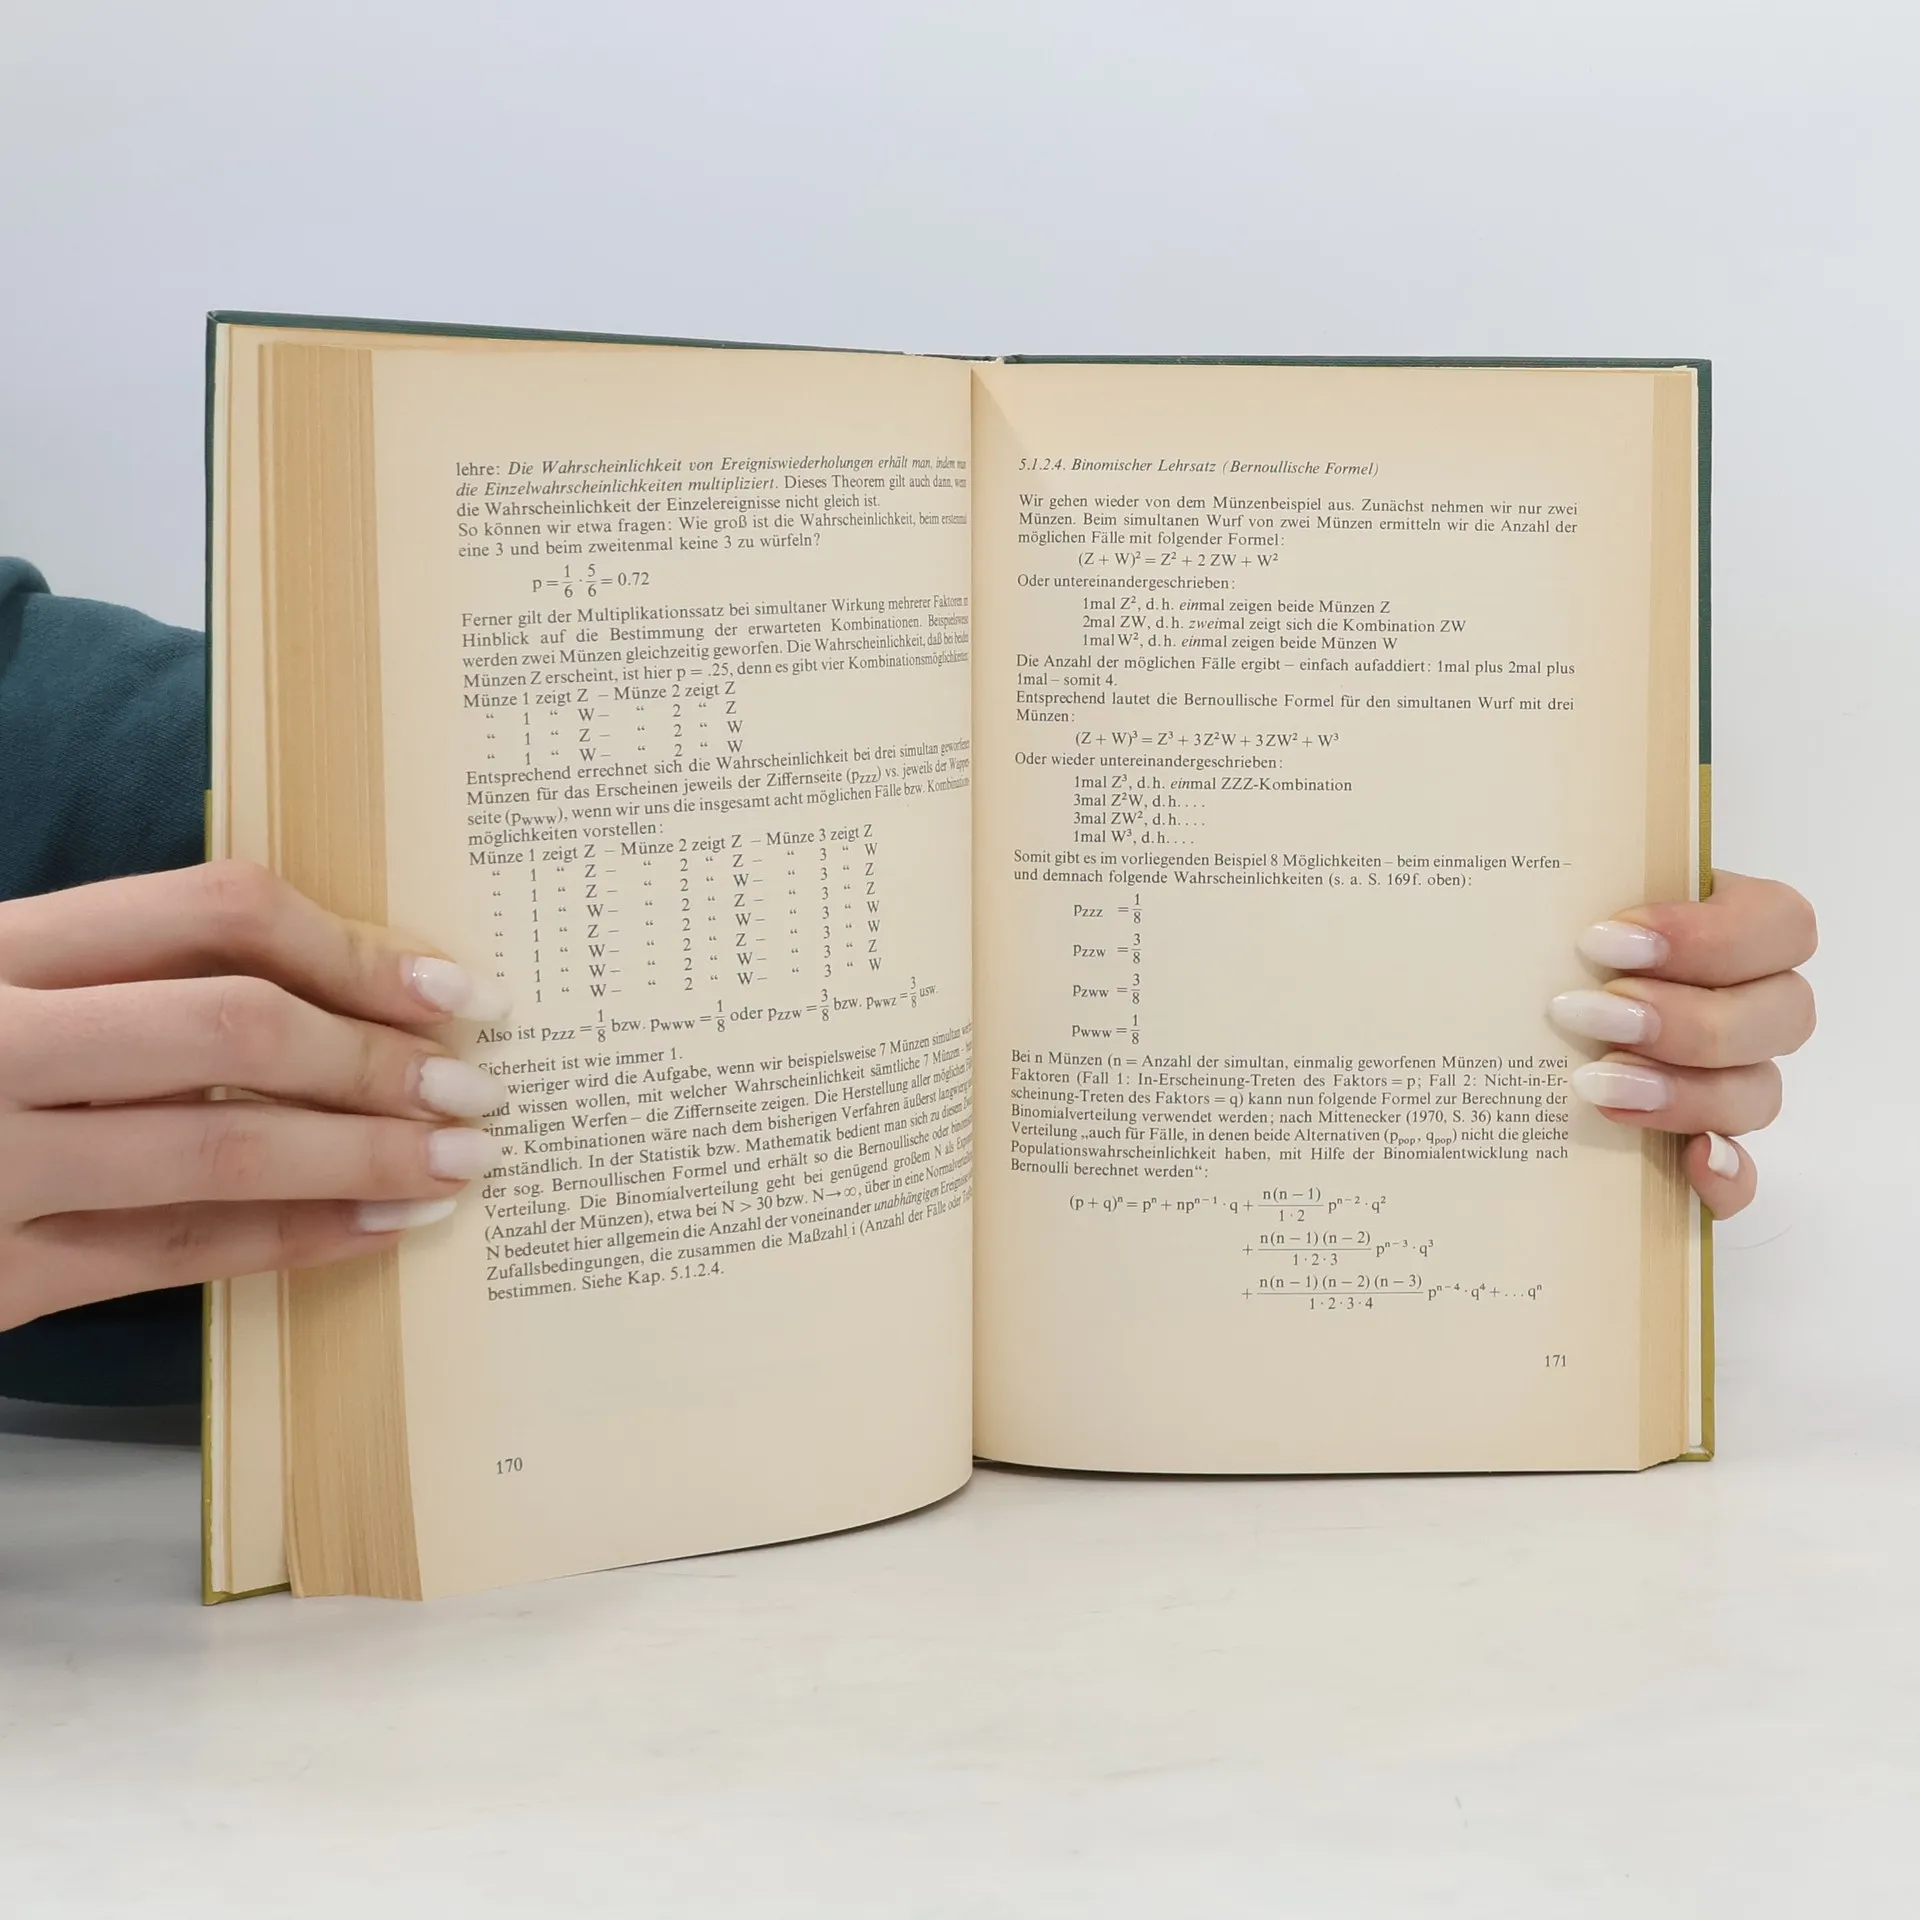 lehre: Die Wahrscheinlichkeit von Ereigniswiederholungen erhält man, indem man
die Einzelwahrscheinlichkeiten multipliziert. Dieses Theorem gilt auch dann, wenn
die Wahrscheinlichkeit der Einzelereignisse nicht gleich ist.
So können wir etwa fragen: Wie groß ist die Wahrscheinlichkeit, beim erstenmal
eine 3 und beim zweitenmal keine 3 zu würfeln?
p = 1/6 · 5/6 = 0.72
Ferner gilt der Multiplikationssatz bei simultaner Wirkung mehrerer Faktoren
Hinblick auf die Bestimmung der erwarteten Kombinationen. Beispielsweise
werden zwei Münzen gleichzeitig geworfen. Die Wahrscheinlichkeit, daß bei beiden
Münzen Z erscheint, ist hier p = .25, denn es gibt vier Kombinationsmöglichkeiten:
Münze 1 zeigt Z – Münze 2 zeigt Z
“ 1 “ W – “ 2 “ Z
“ 1 “ Z – “ 2 “ W
“ 1 “ W – “ 2 “ W
Entsprechend errechnet sich die Wahrscheinlichkeit bei drei simultan geworfenen
Münzen für das Erscheinen jeweils der Ziffernseite (pZZZ) vs. jeweils der Wappen-
seite (pWWW), wenn wir uns die insgesamt acht möglichen Fälle bzw. Kombinations-
möglichkeiten vorstellen:
Münze 1 zeigt Z – Münze 2 zeigt Z – Münze 3 zeigt Z
“ 1 “ Z – “ 2 “ Z – “ 3 “ W
“ 1 “ Z – “ 2 “ W – “ 3 “ Z
“ 1 “ W – “ 2 “ Z – “ 3 “ Z
“ 1 “ Z – “ 2 “ W – “ 3 “ W
“ 1 “ W – “ 2 “ Z – “ 3 “ W
“ 1 “ W – “ 2 “ W – “ 3 “ Z
1 “ W – 2 “ W – “ 3 “ W
Also ist pZZZ = 1/8 bzw. pWWW = 1/8 oder pZZW = 3/8 bzw. pWWZ = 3/8 usw.
Sicherheit ist wie immer 1.
wieriger wird die Aufgabe, wenn wir beispielsweise 7 Münzen simultan
und wissen wollen, mit welcher Wahrscheinlichkeit sämtliche 7 Münzen –
einmaligen Werfen – die Ziffernseite zeigen. Die Herstellung aller möglichen
w. Kombinationen wäre nach dem bisherigen Verfahren äußerst langwierig
umständlich. In der Statistik bzw. Mathematik bedient man sich zu diesem
der sog. Bernoullischen Formel und erhält so die Bernoullische oder
Verteilung. Die Binomialverteilung geht bei genügend großem N als
(Anzahl der Münzen), etwa bei N > 30 bzw. N→∞, über in eine
N bedeutet hier allgemein die Anzahl der voneinander unabhängigen
Zufallsbedingungen, die zusammen die Maßzahl i (Anzahl der Fälle oder
bestimmen. Siehe Kap. 5.1.2.4.
170
5.1.2.4. Binomischer Lehrsatz (Bernoullische Formel)
Wir gehen wieder von dem Münzenbeispiel aus. Zunächst nehmen wir nur zwei
Münzen. Beim simultanen Wurf von zwei Münzen ermitteln wir die Anzahl der
möglichen Fälle mit folgender Formel:
(Z + W)² = Z² + 2 ZW + W²
Oder untereinandergeschrieben:
1mal Z², d.h. einmal zeigen beide Münzen Z
2mal ZW, d.h. zweimal zeigt sich die Kombination ZW
1mal W², d.h. einmal zeigen beide Münzen W
Die Anzahl der möglichen Fälle ergibt – einfach aufaddiert: 1mal plus 2mal plus
1mal – somit 4.
Entsprechend lautet die Bernoullische Formel für den simultanen Wurf mit drei
Münzen:
(Z + W)³ = Z³ + 3Z²W + 3ZW² + W³
Oder wieder untereinandergeschrieben:
1mal Z³, d.h. einmal ZZZ-Kombination
3mal Z²W, d.h. . . .
3mal ZW², d.h. . . .
1mal W³, d.h. . . .
Somit gibt es im vorliegenden Beispiel 8 Möglichkeiten – beim einmaligen Werfen –
und demnach folgende Wahrscheinlichkeiten (s. a. S. 169f. oben):
pZZZ = 1/8
pZZW = 3/8
pZWW = 3/8
pWWW = 1/8
Bei n Münzen (n = Anzahl der simultan, einmalig geworfenen Münzen) und zwei
Faktoren (Fall 1: In-Erscheinung-Treten des Faktors = p; Fall 2: Nicht-in-Er-
scheinung-Treten des Faktors = q) kann nun folgende Formel zur Berechnung der
Binomialverteilung verwendet werden; nach Mittenecker (1970, S. 36) kann diese
Verteilung „auch für Fälle, in denen beide Alternativen (ppop, qpop) nicht die gleiche
Populationswahrscheinlichkeit haben, mit Hilfe der Binomialentwicklung nach
Bernoulli berechnet werden“:
(p + q)ⁿ = pⁿ + npⁿ⁻¹ · q + n(n – 1)/1 · 2 pⁿ⁻² · q²
+ n(n – 1) (n – 2)/1 · 2 · 3 pⁿ⁻³ · q³
+ n(n – 1) (n – 2) (n – 3)/1 · 2 · 3 · 4 pⁿ⁻⁴ · q⁴ + . . . qⁿ
171